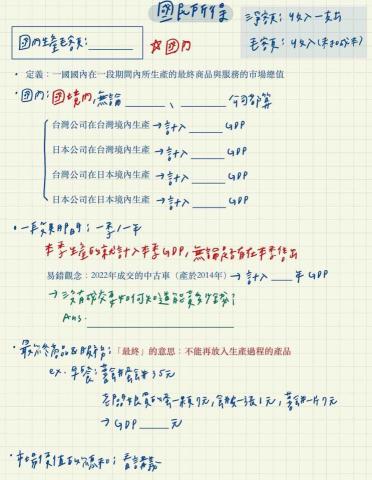 國民所得
淨額：收入－支出
毛額：收入(未扣成本)
國內生產毛額：________ ☆國內
• 定義：一國國內在一段期間內所生產的最終商品與服務的市場總值
• 國內：國境內，無論______、______公司都算
台灣公司在台灣境內生產 → 計入______GDP
日本公司在台灣境內生產 → 計入______GDP
台灣公司在日本境內生產 → 計入______GDP
日本公司在日本境內生產 → 計入______GDP
• 一段期間：一季/一年
本季生產的就計入本季GDP，無論是否有在本季售出
易錯觀念：2022年成交的中古車（產於2014年）→ 計入____年GDP
→ 沒有成交要如何知道能賣多少錢？
Ans. ________________
• 最終商品&服務：「最終」的意思：不能再放入生產過程的產品
ex. 早餐：薯餅蛋餅35元
老闆娘買的蛋一顆7元，餅皮一張1元，薯餅一片7元
→ GDP____元
• 市場價值的總和：看講義